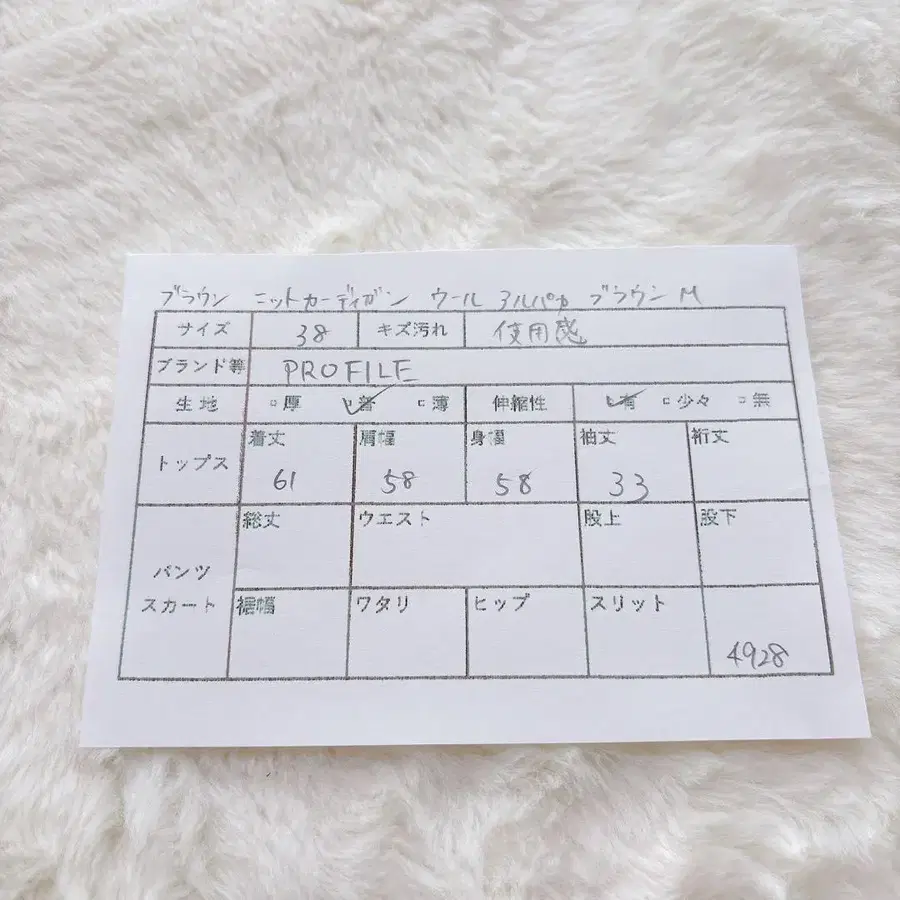 ブラウン ニットカーディガン ウール アルパカ ブラウン M
サイズ 38 キズ汚れ 使用感
ブランド等 PROFILE
生地 □厚 ☑普 □薄 伸縮性 ☑有 □少々 □無
トップス 着丈 61 肩幅 58 身幅 58 袖丈 33 裄丈
パンツ スカート 総丈 ウエスト 股上 股下
裾幅 ワタリ ヒップ スリット 4928